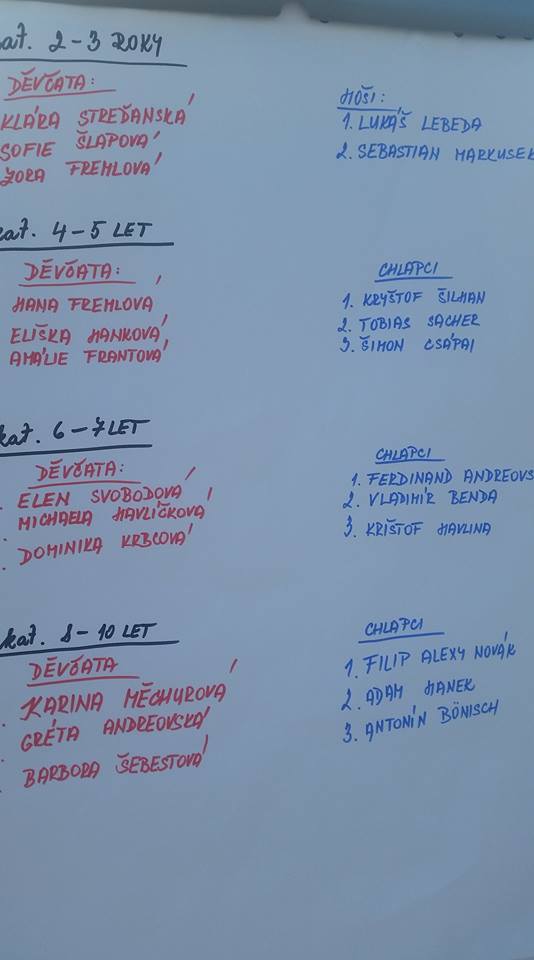 kat. 2-3 ROKY
DĚVČATA:
KLÁRA STREĎANSKÁ
SOFIE ŠLAPOVÁ
ZORA FREMLOVÁ
HOŠI:
1. LUKÁŠ LEBEDA
2. SEBASTIAN MARKUSEK
kat. 4-5 LET
DĚVČATA:
HANA FREMLOVÁ
ELIŠKA HANKOVÁ
AMÁLIE FRANTOVÁ
CHLAPCI
1. KRYŠTOF ŠILHAN
2. TOBIAS SACHER
3. ŠIMON CSÁPAI
kat. 6-7 LET
DĚVČATA:
ELEN SVOBODOVÁ
MICHAELA HAVLÍČKOVÁ
DOMINIKA KRBCOVÁ
CHLAPCI
1. FERDINAND ANDREOVS
2. VLADIMÍR BENDA
3. KRIŠTOF HAVLINA
kat. 8-10 LET
DĚVČATA
KARINA MĚCHUROVÁ
GRÉTA ANDREOVSKÁ
BARBORA ŠEBESTOVÁ
CHLAPCI
1. FILIP ALEXY NOVÁK
2. ADAM HANEK
3. ANTONÍN BÖNISCH